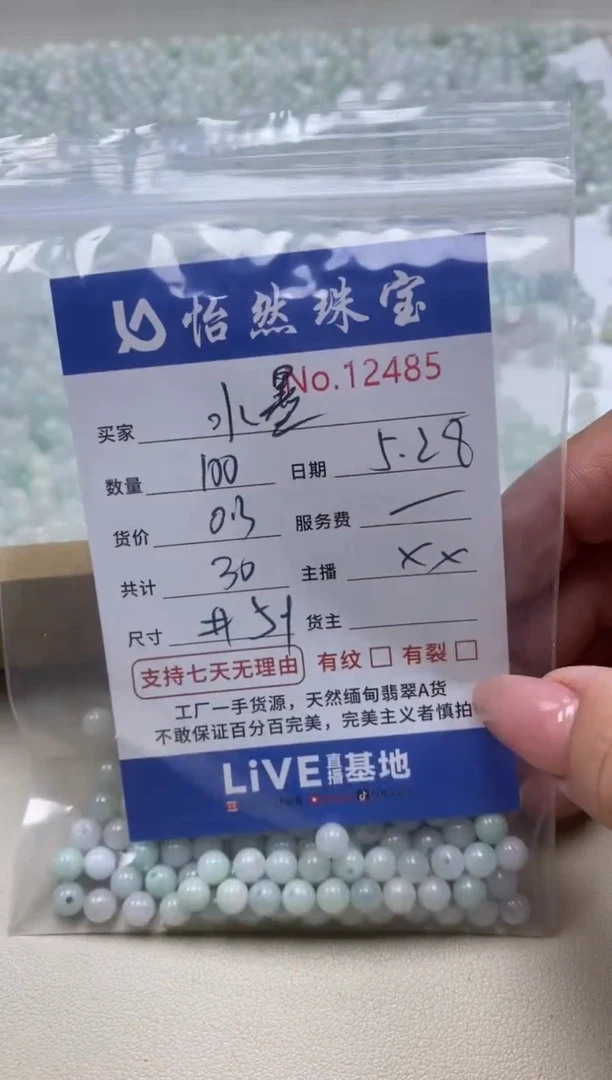 怡然珠宝
No.12485
买家 水星
数量 100 日期 5.28
货价 0.3 服务费 —
共计 30 主播 xx
尺寸 #51 货主
支持七天无理由 有纹 □ 有裂 □
工厂一手货源，天然缅甸翡翠A货
不敢保证百分百完美，完美主义者慎拍
LiVE直播基地